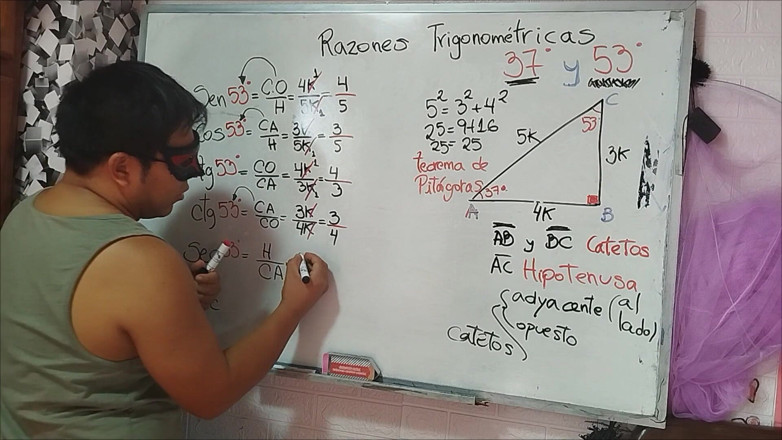 Razones Trigonométricas
37° y 53°
Sen 53° = CO/H = 4K/5K = 4/5
os 53° = CA/H = 3K/5K = 3/5
tg 53° = CO/CA = 4K/3K = 4/3
ctg 53° = CA/CO = 3K/4K = 3/4
Sec 53° = H/CA
5² = 3² + 4²
25 = 9+16
25 = 25
teorema de
Pitágoras
C
53
5K
3K
37°
A
4K
B
AB y BC Catetos
AC Hipotenusa
catetos { adyacente (al lado)
opuesto